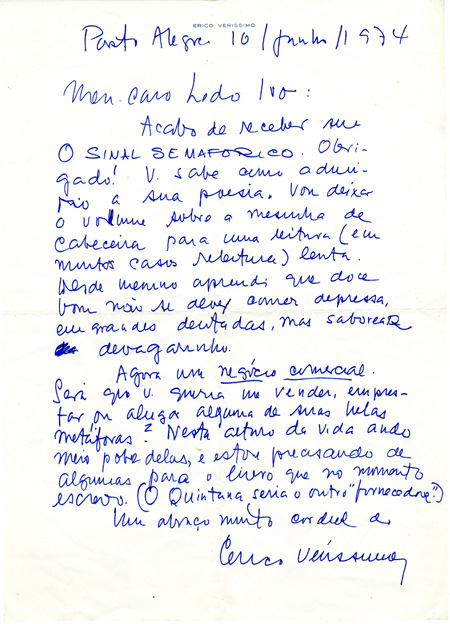 ERICO VERISSIMO
Porto Alegre 10/junho/1974
Meu caro Ledo Ivo:
Acabo de receber seu
O SINAL SEMAFORICO. Obri-
gado! V. sabe como admi-
ro a sua poesia. Vou deixar
o volume sobre a mesinha de
cabeceira para uma leitura (em
muitos casos releitura) lenta.
Desde menino aprendi que doce
bom não se deve comer depressa,
em grandes dentadas, mas saborear
devagarinho.
Agora um negócio comercial.
Será que v. queria me vender, empres-
tar ou alugar alguma de suas belas
metáforas? Nesta altura da vida ando
meio pobre delas, e estou precisando de
algumas para o livro que no momento
escrevo. (O Quintana seria o outro "fornecedor".)
Um abraço muito cordial do
Erico Verissimo